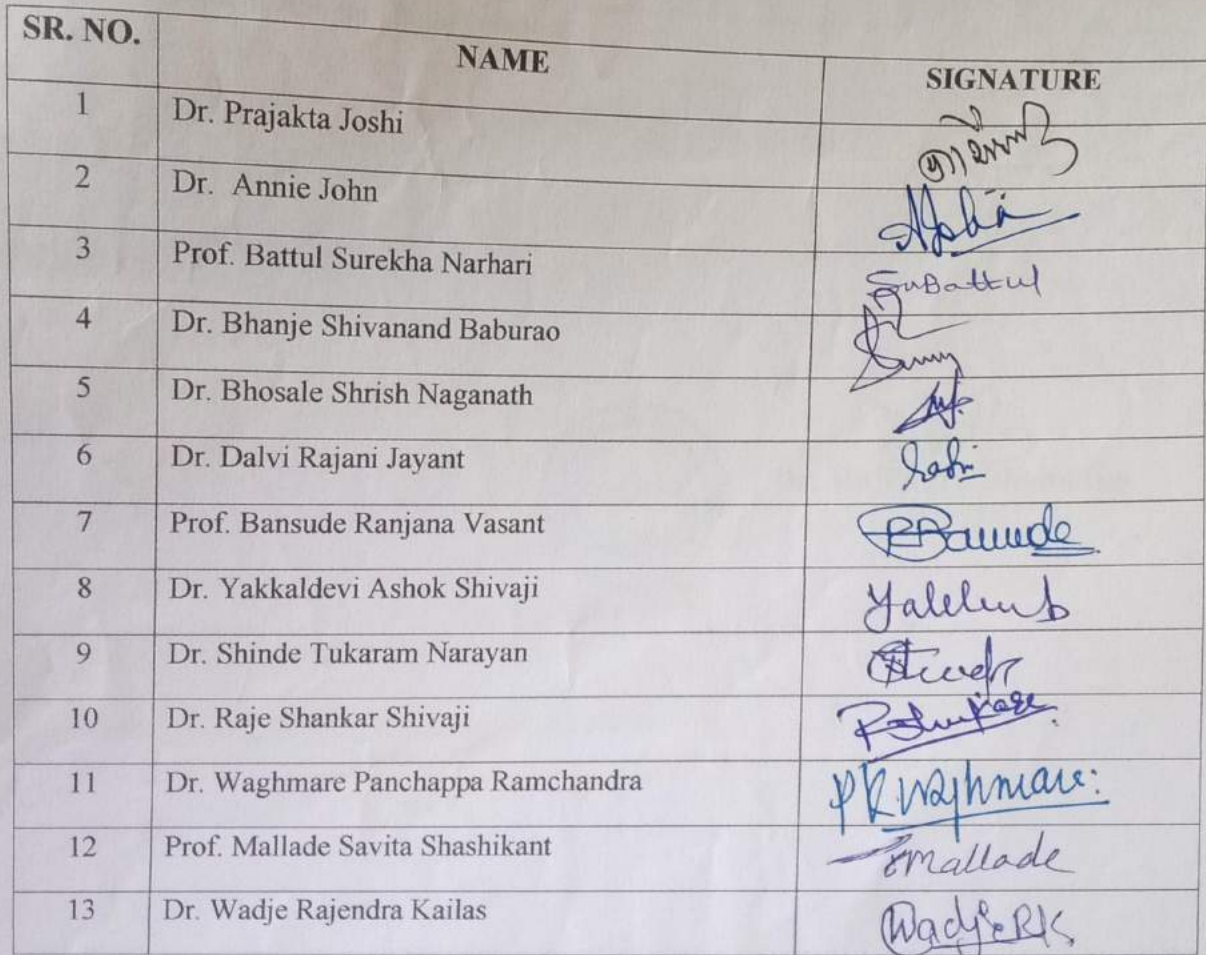 SR. NO. NAME SIGNATURE
1 Dr. Prajakta Joshi
2 Dr. Annie John
3 Prof. Battul Surekha Narhari SnBattul
4 Dr. Bhanje Shivanand Baburao
5 Dr. Bhosale Shrish Naganath
6 Dr. Dalvi Rajani Jayant
7 Prof. Bansude Ranjana Vasant
8 Dr. Yakkaldevi Ashok Shivaji
9 Dr. Shinde Tukaram Narayan
10 Dr. Raje Shankar Shivaji
11 Dr. Waghmare Panchappa Ramchandra PRWaghmare
12 Prof. Mallade Savita Shashikant Smallade
13 Dr. Wadje Rajendra Kailas Wadje RK